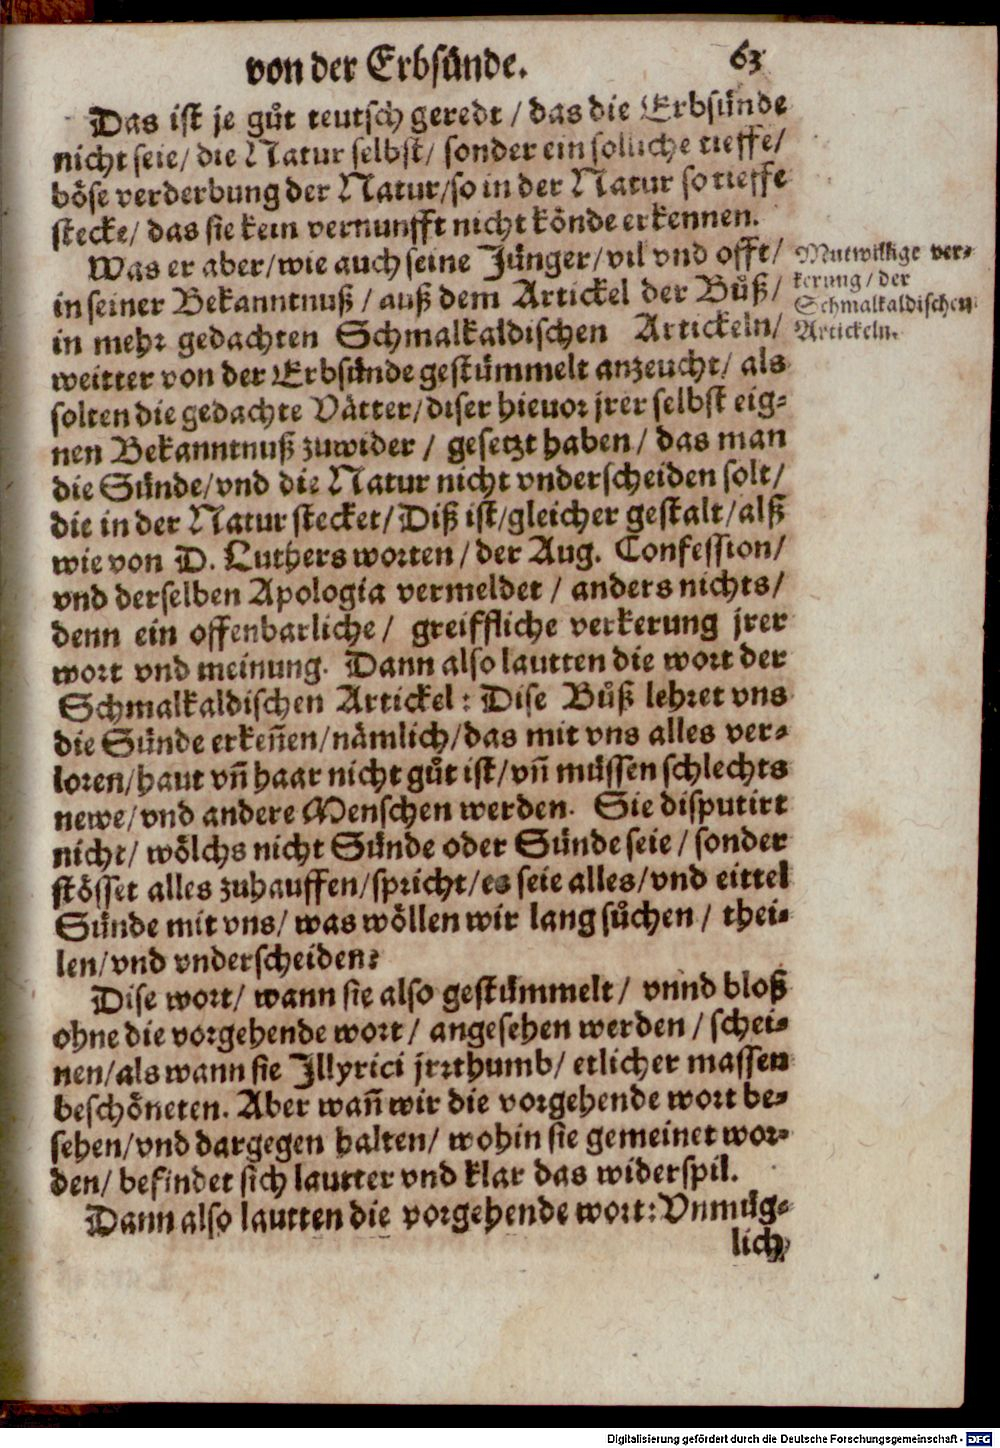 von der Erbsünde.
63
Das ist je gůt teutsch geredt / das die Erbsünde
nicht seie/ die Natur selbst/ sonder ein solliche tieffe/
böse verderbung der Natur/so in der Natur so tieffe
stecke/ das sie kein vernunfft nicht könde erkennen.
Was er aber/wie auch seine Jünger/vil vnd offt/
in seiner Bekanntnuß / auß dem Artickel der Bůß/
in mehr gedachten Schmalkaldischen Artickeln/
weitter von der Erbsünde gestümmelt anzeucht/ als
solten die gedachte Vätter/diser hieuor jrer selbst eig⸗
nen Bekanntnuß zuwider / gesetzt haben/ das man
die Sünde/vnd die Natur nicht vnderscheiden solt/
die in der Natur stecket/ Diß ist/gleicher gestalt/alß
wie von D. Luthers worten / der Aug. Confession/
vnd derselben Apologia vermeldet / anders nichts/
denn ein offenbarliche/ greiffliche verkerung jrer
wort vnd meinung. Dann also lautten die wort der
Schmalkaldischen Artickel: Dise Bůß lehret vns
die Sünde erkeñen/nämlich/das mit vns alles ver⸗
loren/haut vñ haar nicht gůt ist/vñ müssen schlechts
newe/vnd andere Menschen werden. Sie disputirt
nicht/ wölchs nicht Sünde oder Sünde seie / sonder
stösset alles zuhauffen/spricht/es seie alles/vnd eittel
Sünde mit vns/ was wöllen wir lang sůchen / thei⸗
len/vnd vnderscheiden?
Dise wort/ wann sie also gestümmelt/ vnnd bloß
ohne die vorgehende wort/ angesehen werden / schei⸗
nen/als wann sie Illyrici jrrthumb/ etlicher massen
beschöneten. Aber wañ wir die vorgehende wort be⸗
sehen/vnd dargegen halten/ wohin sie gemeinet wor⸗
den/ befindet sich lautter vnd klar das widerspil.
Dann also lautten die vorgehende wort: Vnmüg⸗
lich
Mutwillige ver⸗
kerung / der
Schmalkaldischen
Artickeln.
Digitalisierung gefördert durch die Deutsche Forschungsgemeinschaft - DFG